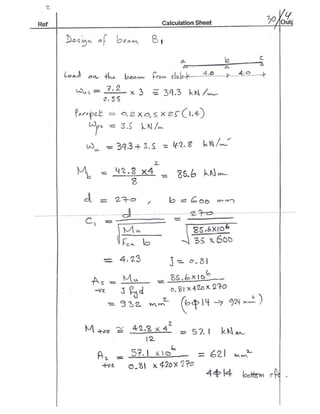 2
30/4
Ref Calculation Sheet Out
Design of beam B1
a b c
4.0 4.0
Load on the beam from slabs
Wus = 7.2 / 0.55 × 3 ≅ 39.3 kN/m
Parapet = 0.2×0.5×25(1.4)
Wpu = 3.5 kN/m
Wu = 39.3 + 3.5 = 42.8 kN/m
Mb = 42.8 × 4² / 8 = 85.6 kN.m
d = 270 , b = 600 mm
C1 = d / √(Mu / Fcu b) = 270 / √(85.6×10⁶ / 35×600)
= 4.23 J = 0.81
As -ve = Mu / J Fy d = 85.6×10⁶ / 0.81×420×270
= 932 mm² (6Φ14 → 924 mm²)
M +ve ≅ 42.8 × 4² / 12 = 57.1 kNm
As +ve = 57.1 × 10⁶ / 0.81 × 420 × 270 = 621 mm²
4Φ14 bottom rft.